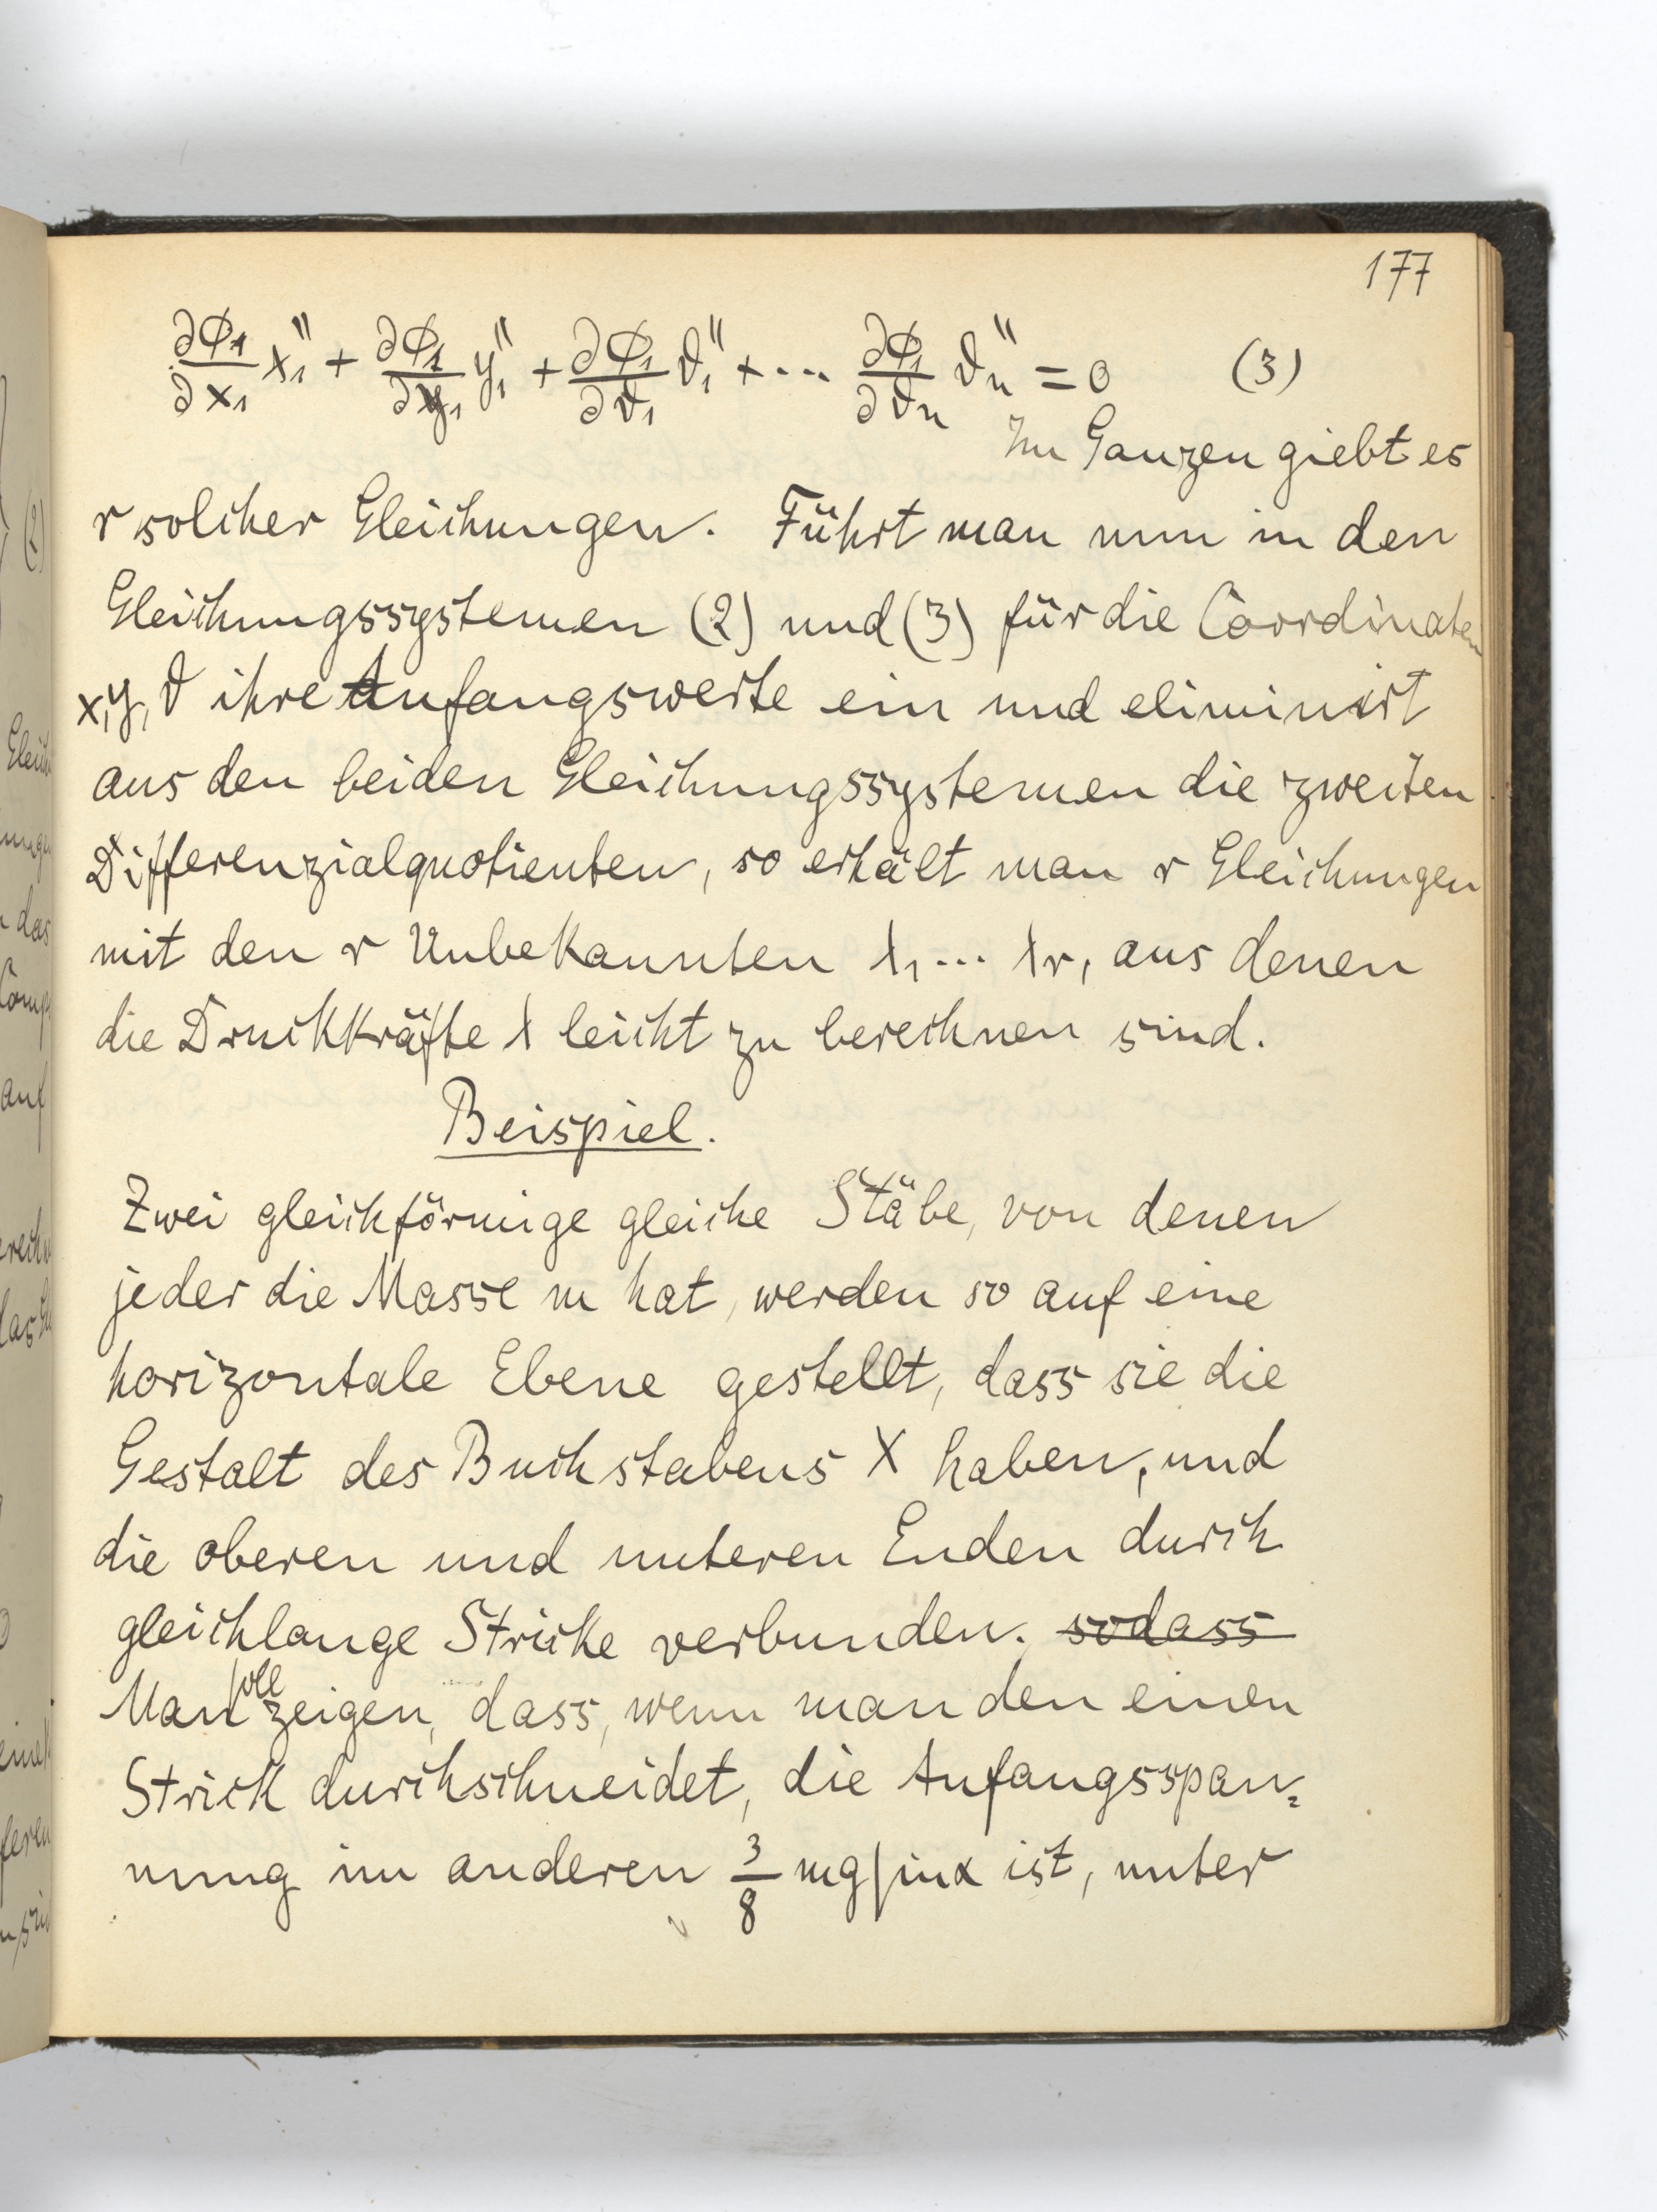 177
∂Φ₁/∂x₁ x₁'' + ∂Φ₁/∂y₁ y₁'' + ∂Φ₁/∂ϑ₁ ϑ₁'' + ... ∂Φ₁/∂ϑn ϑn'' = 0 (3)
Im Ganzen giebt es
r solcher Gleichungen. Führt man nun in den
Gleichungssystemen (2) und (3) für die Coordinaten
x, y, ϑ ihre Anfangswerte ein und eliminirt
aus den beiden Gleichungssystemen die zweiten
Differenzialquotienten, so erhält man r Gleichungen
mit den r Unbekannten λ₁ ... λr, aus denen
die Druckkräfte λ leicht zu berechnen sind.
Beispiel.
Zwei gleichförmige gleiche Stäbe, von denen
jeder die Masse m hat, werden so auf eine
horizontale Ebene gestellt, dass sie die
Gestalt des Buchstabens X haben, und
die oberen und unteren Enden durch
gleichlange Stricke verbunden. sodass
Man soll zeigen, dass, wenn man den einen
Strick durchschneidet, die Anfangsspan=
nung im anderen 3/8 mg sin α ist, unter
(2)
das
auf